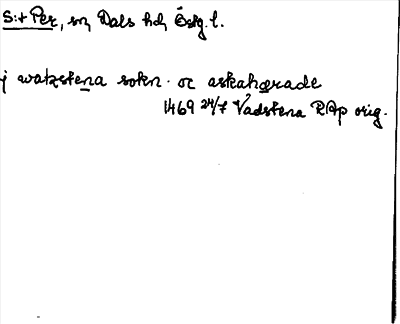 S:t Per, sn, Dals hd, Östg. l.
j watzstena sokn . oc askahærade
1469 24/7 Vadstena RAp orig.